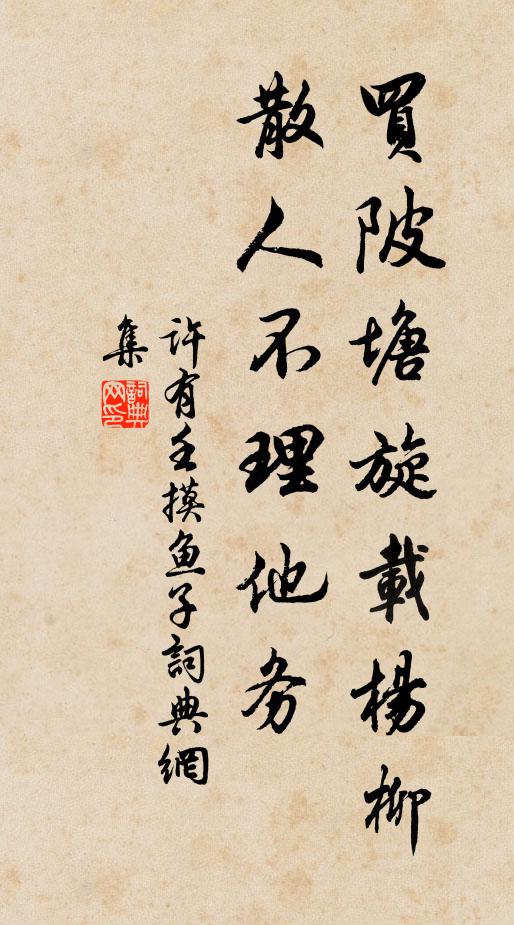 買陂塘旋載楊柳
散人不理他务
许有壬摸鱼子詞典網
集
詞典網印